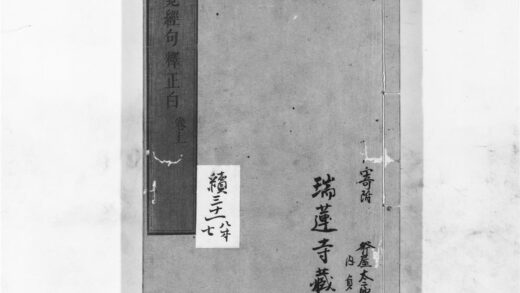 寄附
屋太
瑞蓮寺藏
續三十一
七
覺經句釋正白 卷上